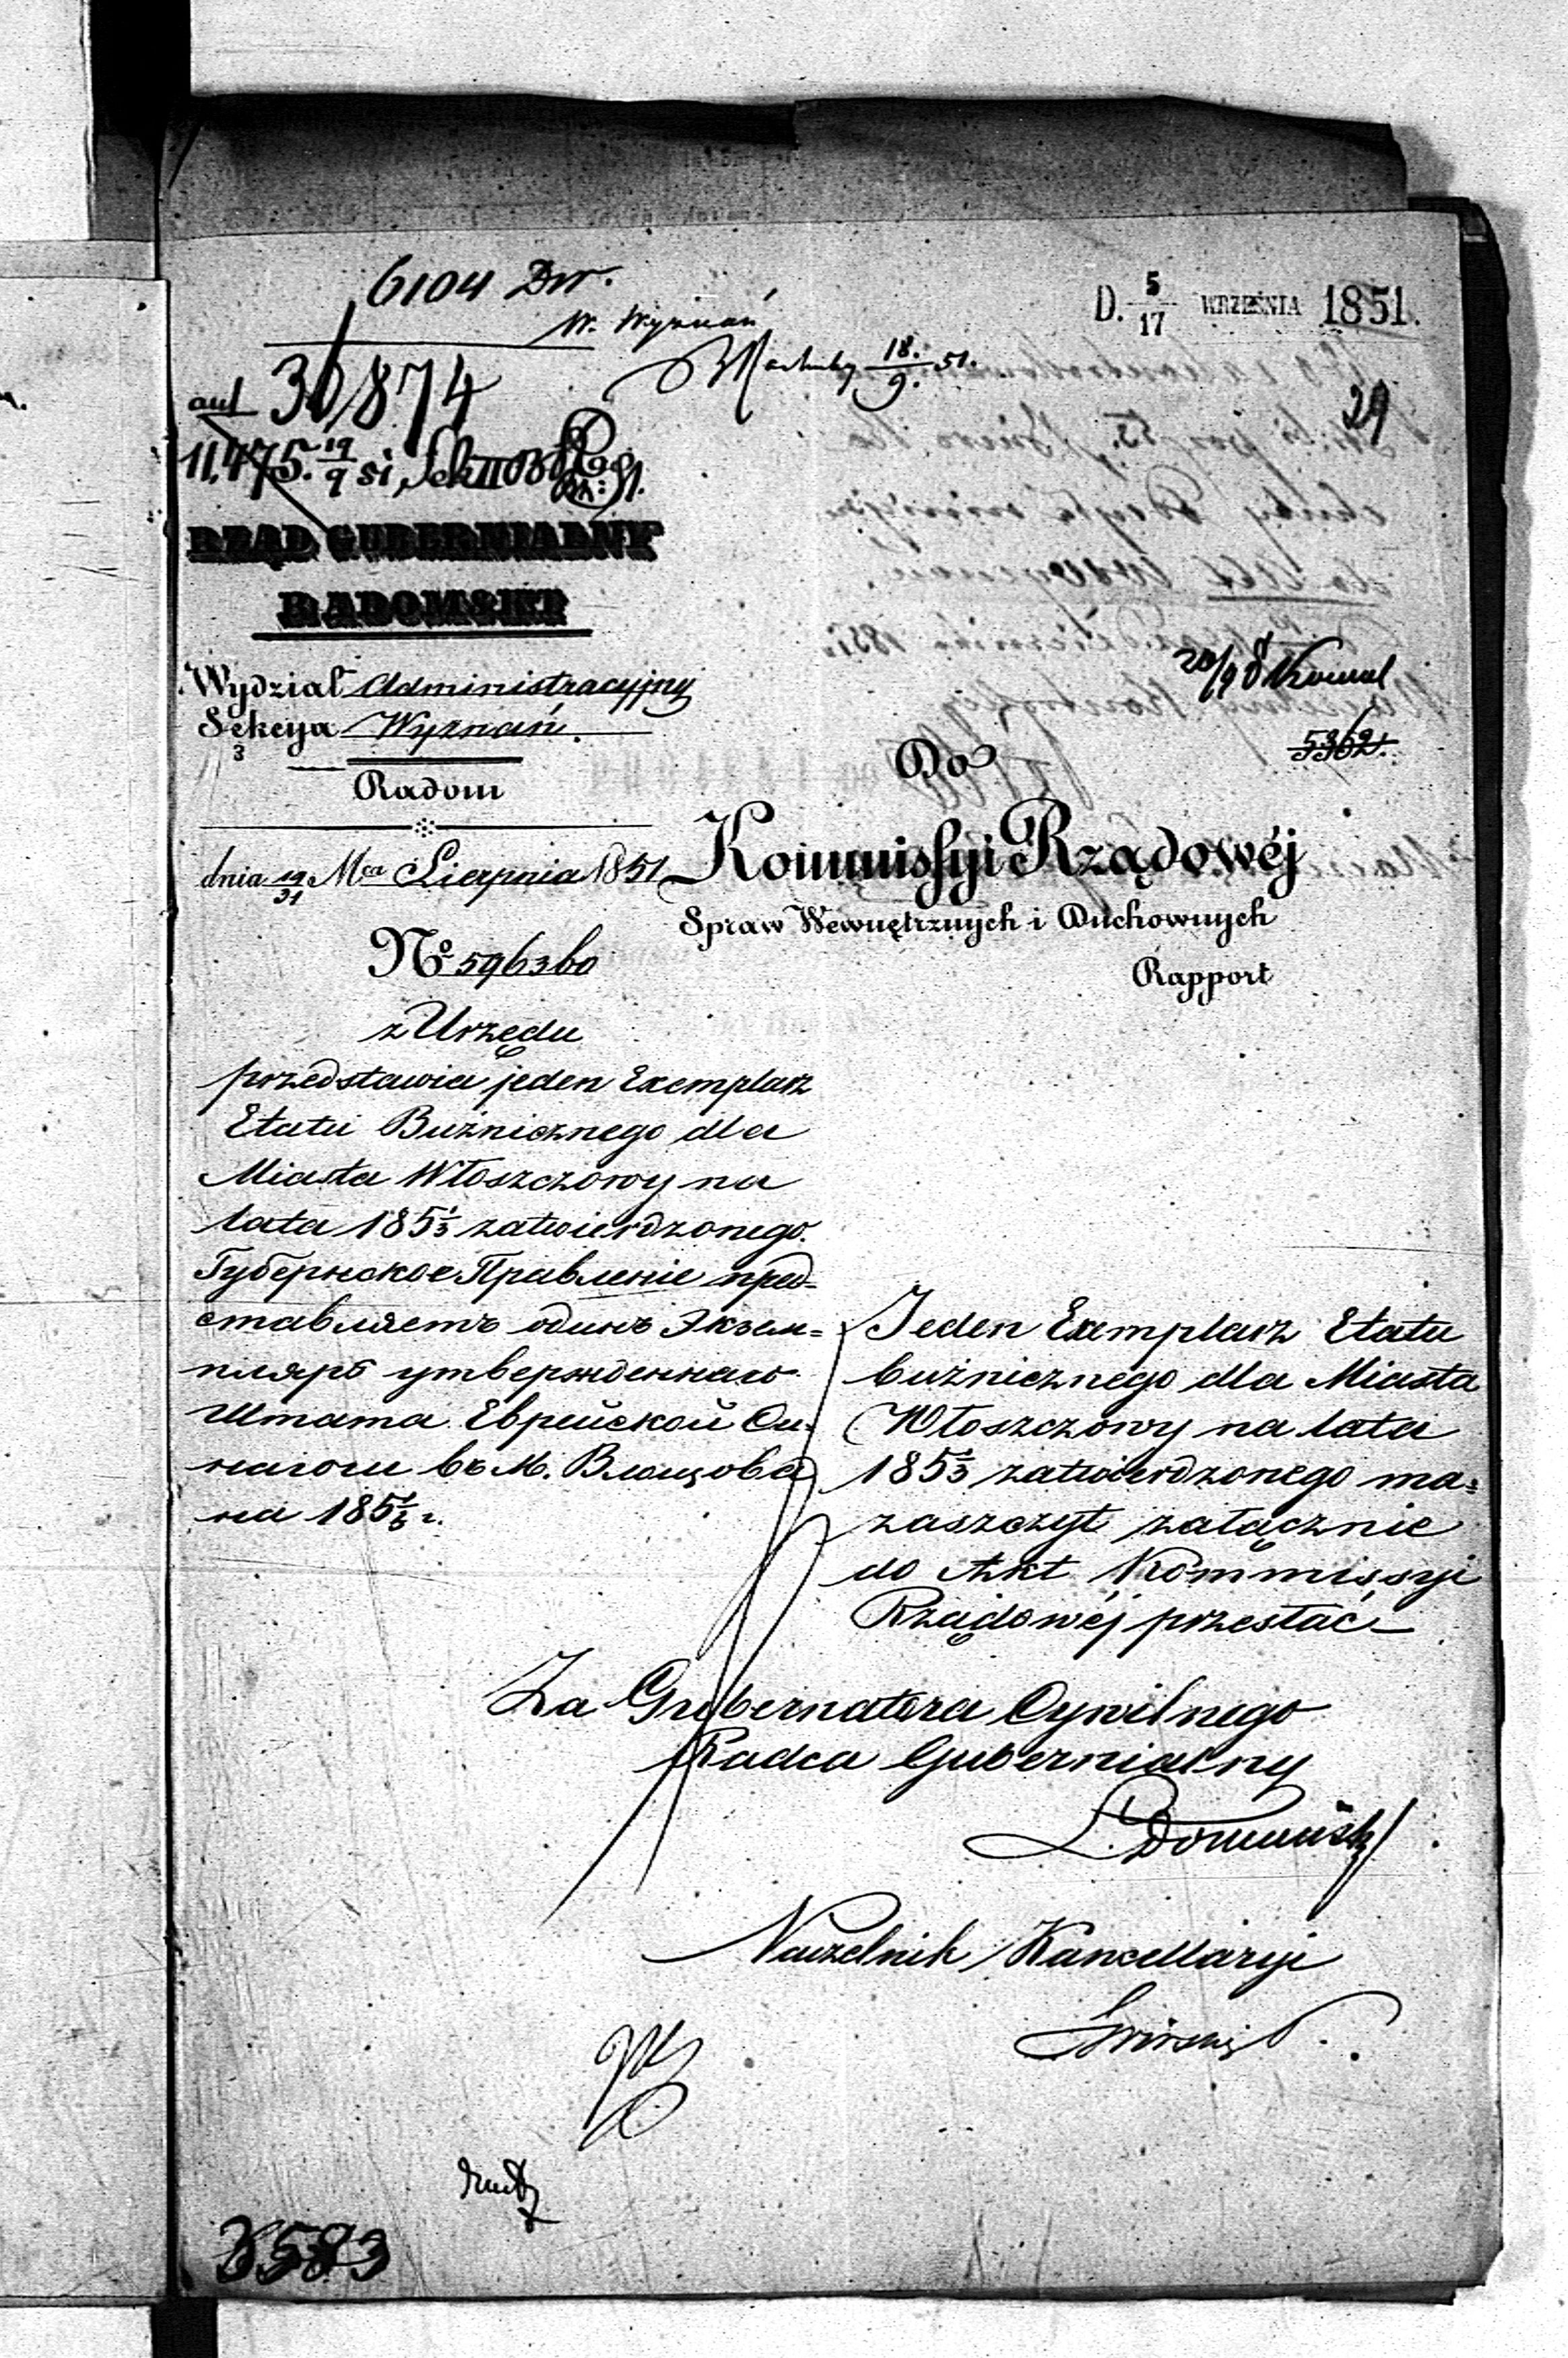 6104 Dw.
W. Wyznań
D. 5/17 WRZEŚNIA 1851.
18./9. 51.
30874
29
11,475. 19/9 51
RZĄD GUBERNIALNY
RADOMSKI
Wydział Administracyjny
Sekcya Wyznań.
3
5362.
Radom
Do
dnia 19/31 Mca Sierpnia 1851
Kommissyi Rządowéj
Spraw Wewnętrznych i Duchownych
Rapport
No 596360
z Urzędu
przedstawia jeden Exemplarz
Etatu Bużnicznego dla
Miasta Włoszczowy na
lata 185 1/3 zatwierdzonego.
Губернское Правленіе пред=
ставляетъ одинъ Экзем=
пляръ утвержденнаго
Штата Еврейской Си=
нагоги въ М. Влощова
на 185 1/3 г.
Jeden Exemplarz Etatu
bużnicznego dla Miasta
Włoszczowy na lata
185 1/3 zatwierdzonego ma=
zaszczyt załącznie
do Akt Kommissyi
Rządowéj przesłać
Za Gubernatora Cywilnego
Radca Gubernialny
Naczelnik Kancellaryi
3583